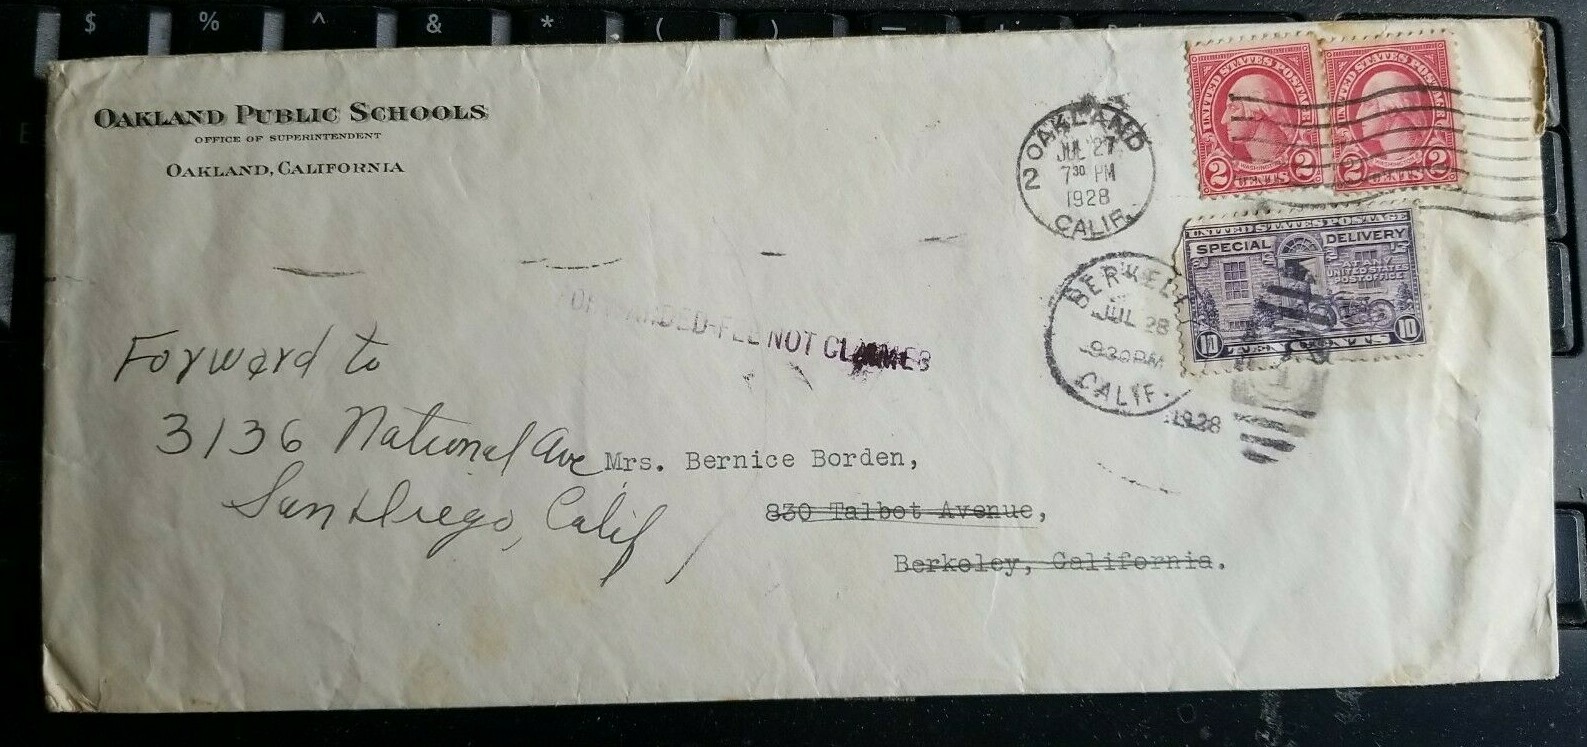 $ % ^ & * ( ) — +
OAKLAND PUBLIC SCHOOLS
OFFICE OF SUPERINTENDENT
OAKLAND, CALIFORNIA
OAKLAND
2
JUL 27
7 30 PM
1928
CALIF.
UNITED STATES POSTAGE
WASHINGTON
2 CENTS 2
UNITED STATES POSTAGE
WASHINGTON
2 CENTS 2
UNITED STATES POSTAGE
SPECIAL DELIVERY
AT ANY
UNITED STATES
POST OFFICE
10 TEN CENTS 10
BERKELEY
JUL 28
930PM
CALIF.
1928
FORWARDED-FEE NOT CLAIMED
Forward to
3136 National Ave
San Diego, Calif
Mrs. Bernice Borden,
830 Talbot Avenue,
Berkeley, California.